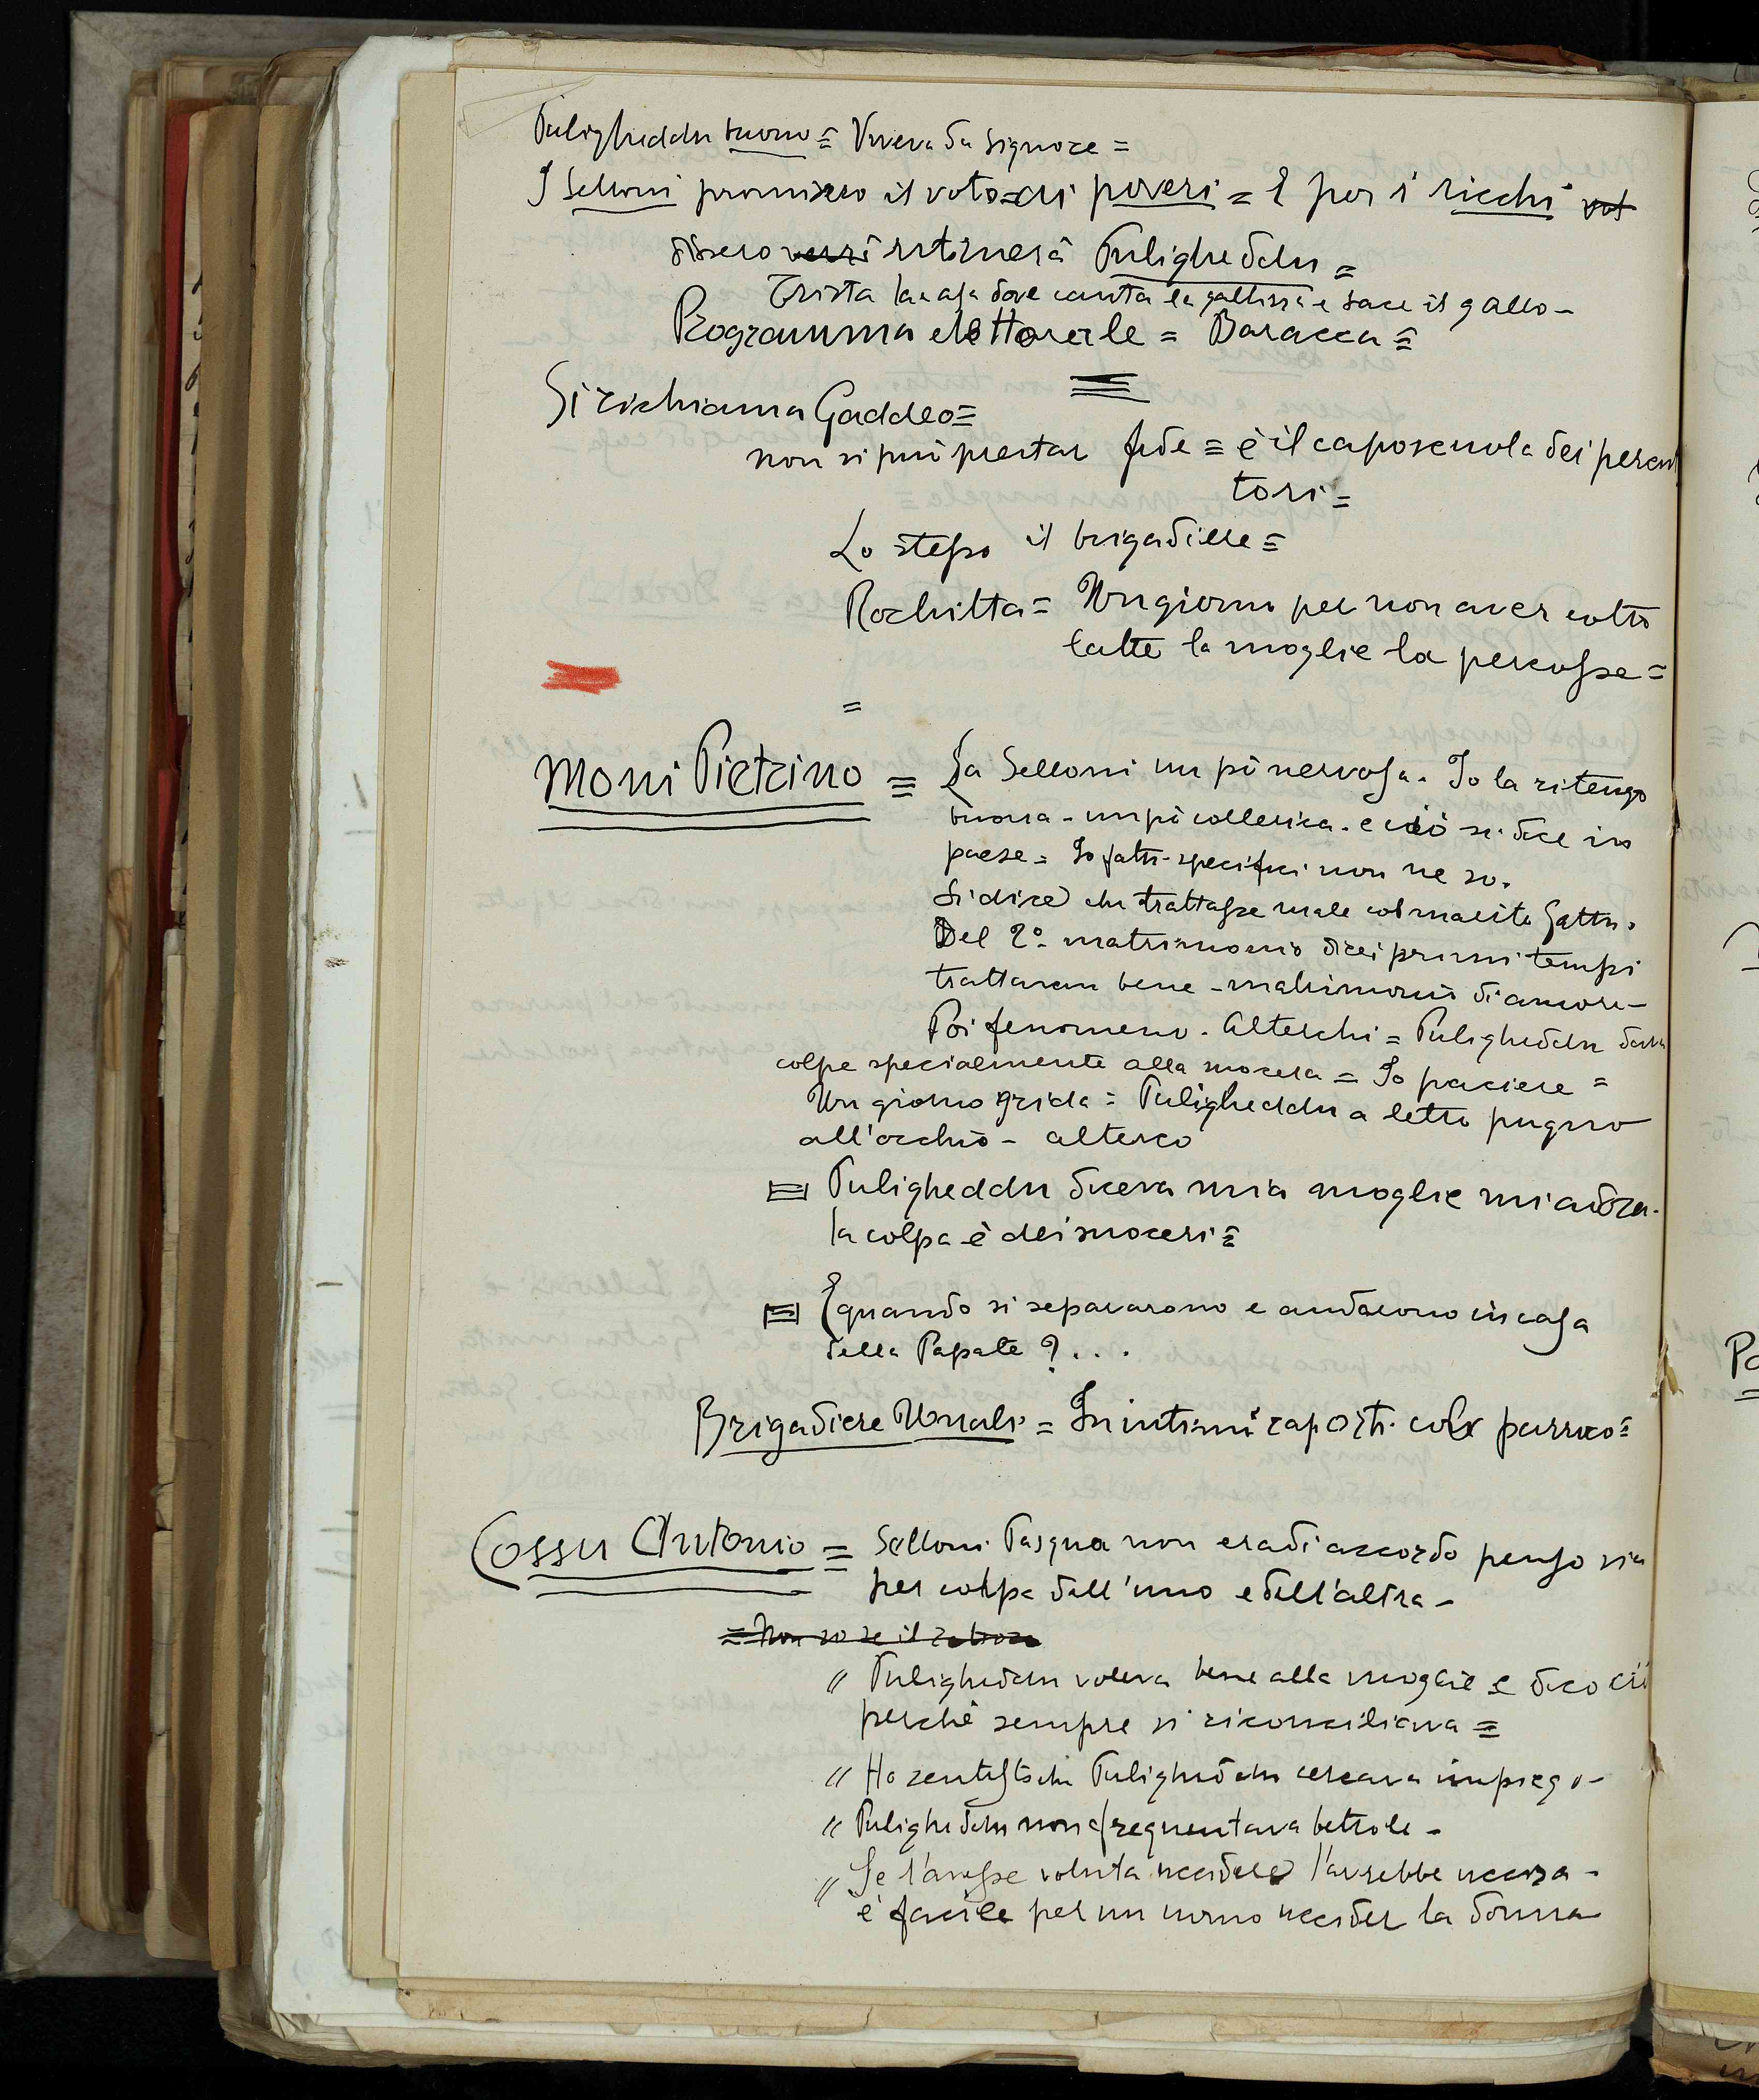 Puligheddu buono = Viveva da signore =
I Selloni promisero il voto ai poveri = E per i ricchi vot
dissero verrà ritinerà Puligheddu =
Trista la casa dove canta la gallina e tace il gallo -
Programma elettorale = Baracca =
Si richiama Gaddeo =
non si può prestar fede = è il caposcuola dei percus
tori =
Lo stesso il brigadiere =
Rochitta = Un giorno per non aver cotto
latte la moglie la percosse =
=
Moni Pietrino = La Selloni un pò nervosa. Io la ritengo
buona - un pò collerica. e ciò si dice in
paese = Io fatti specifici non ne so.
Si dice che trattasse male col marito Gattu.
Del 2º matrimonio dici primi tempi
trattavan bene - matrimonio di amore -
Poi fenomeno. Alterchi = Puligheddu dava
colpe specialmente alla suocera = Io paciere =
Un giorno grida = Puligheddu a letto pugno
all'occhio - alterco
= Puligheddu diceva mia moglie mi adora.
la colpa è dei suoceri =
= E quando si separarono e andarono in casa
della Papale ? . . .
Brigadiere Usuali = In intimi rapporti col parroco =
Cossu Antonio = Selloni Pasqua non era di accordo penso sia
per colpa dell'uno e dell'altra -
= Non so se il
" Puligheddu voleva bene alla moglie e dico ciò
perchè sempre si riconciliava =
" Ho sentito che Puligheddu cercava impiego -
" Puligheddu non frequentava bettole -
" Se l'avesse voluta uccidere l'avrebbe uccisa -
è facile per un uomo uccider la donna